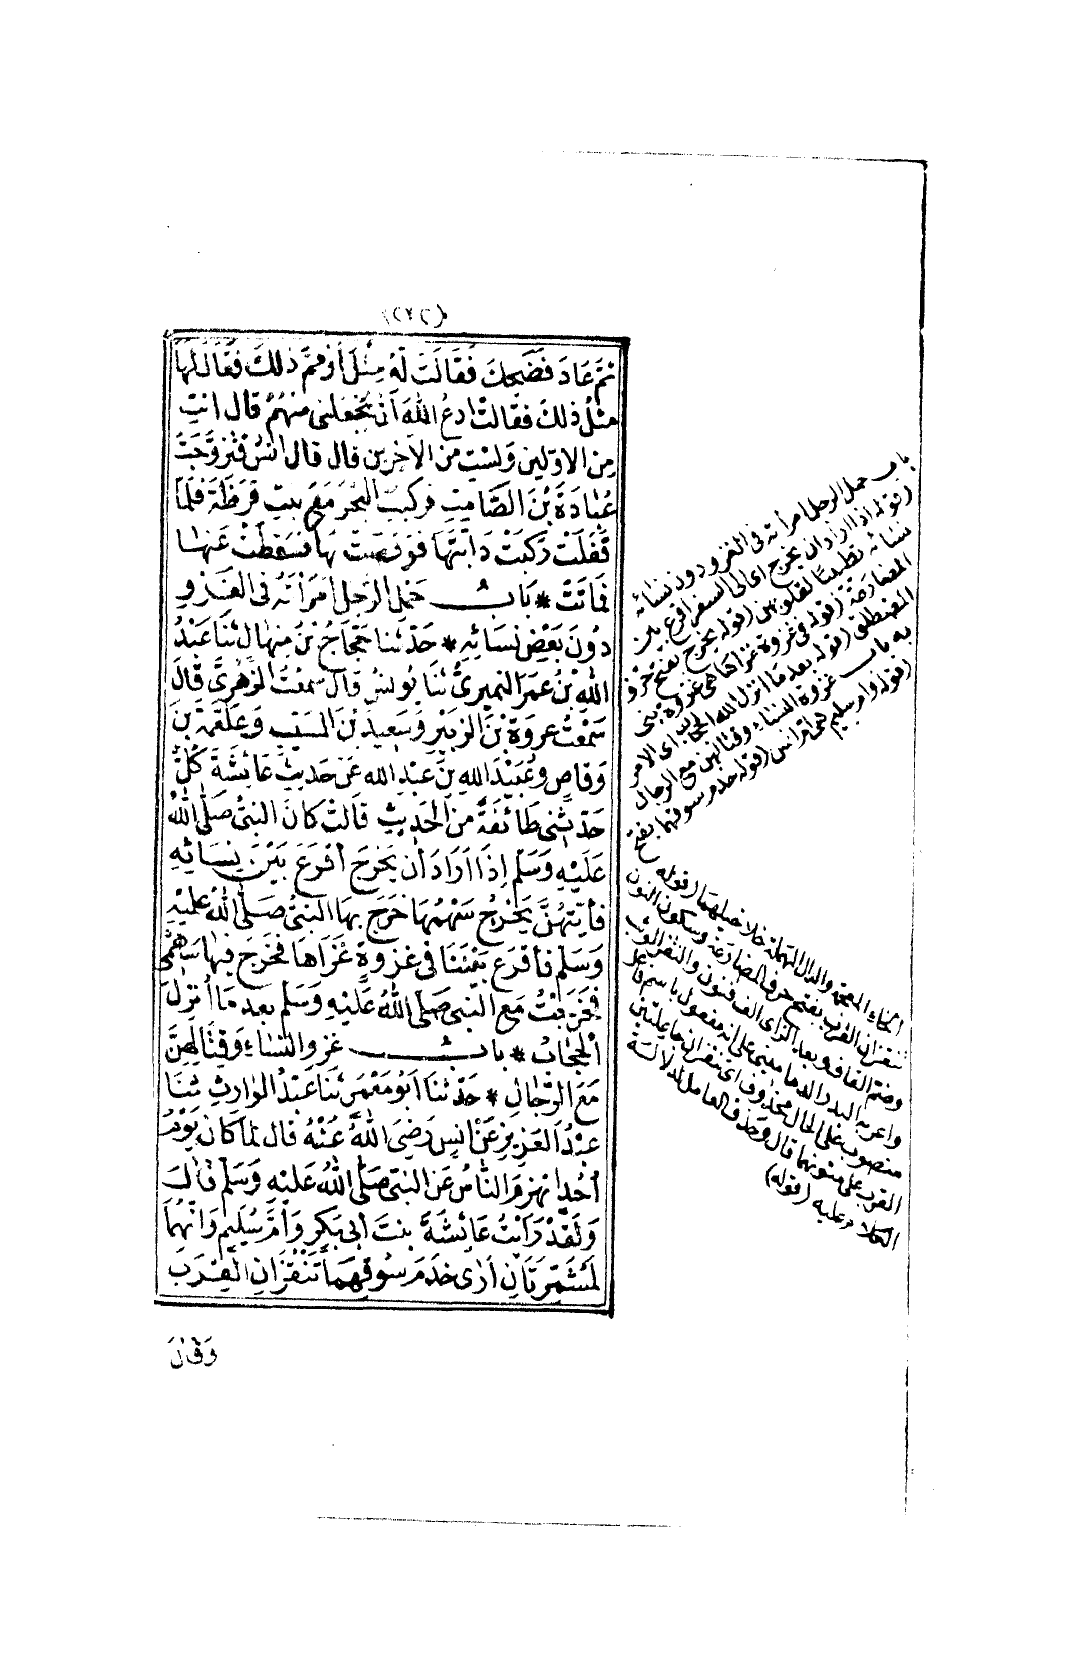 ثُمَّ عَادَ فَضَحِكَ فَقَالَتْ لَهُ مِثْلَ أَوْ مِمَّ ذَلِكَ فَقَالَ لَهَا
مِثْلَ ذَلِكَ فَقَالَتْ ادْعُ اللهَ أَنْ يَجْعَلَنِي مِنْهُمْ قَالَ أَنْتِ
مِنَ الأَوَّلِينَ وَلَسْتِ مِنَ الآخِرِينَ قَالَ قَالَ أَنَسٌ فَتَزَوَّجَتْ
عُبَادَةَ بْنَ الصَّامِتِ فَرَكِبَتِ الْبَحْرَ مَعَ بِنْتِ قَرَظَةَ فَلَمَّا
قَفَلَتْ رَكِبَتْ دَابَّتَهَا فَوَقَصَتْ بِهَا فَسَقَطَتْ عَنْهَا
فَمَاتَتْ * بَابُ حَمْلِ الرَّجُلِ امْرَأَتَهُ فِي الْغَزْوِ
دُونَ بَعْضِ نِسَائِهِ * حَدَّثَنَا حَجَّاجُ بْنُ مِنْهَالٍ ثَنَا عَبْدُ
اللهِ بْنُ عُمَرَ النُّمَيْرِيُّ ثَنَا يُونُسُ قَالَ سَمِعْتُ الزُّهْرِيَّ قَالَ
سَمِعْتُ عُرْوَةَ بْنَ الزُّبَيْرِ وَسَعِيدَ بْنَ الْمُسَيَّبِ وَعَلْقَمَةَ بْنَ
وَقَّاصٍ وَعُبَيْدَ اللهِ بْنَ عَبْدِ اللهِ عَنْ حَدِيثِ عَائِشَةَ كُلٌّ
حَدَّثَنِي طَائِفَةً مِنَ الْحَدِيثِ قَالَتْ كَانَ النَّبِيُّ صَلَّى اللهُ
عَلَيْهِ وَسَلَّمَ إِذَا أَرَادَ أَنْ يَخْرُجَ أَقْرَعَ بَيْنَ نِسَائِهِ
فَأَيَّتُهُنَّ يَخْرُجُ سَهْمُهَا خَرَجَ بِهَا النَّبِيُّ صَلَّى اللهُ عَلَيْهِ
وَسَلَّمَ فَأَقْرَعَ بَيْنَنَا فِي غَزْوَةٍ غَزَاهَا فَخَرَجَ فِيهَا سَهْمِي
فَخَرَجْتُ مَعَ النَّبِيِّ صَلَّى اللهُ عَلَيْهِ وَسَلَّمَ بَعْدَ مَا أُنْزِلَ
الْحِجَابُ * بَابُ غَزْوِ النِّسَاءِ وَقِتَالِهِنَّ
مَعَ الرِّجَالِ * حَدَّثَنَا أَبُو مَعْمَرٍ ثَنَا عَبْدُ الْوَارِثِ ثَنَا
عَبْدُ الْعَزِيزِ عَنْ أَنَسٍ رَضِيَ اللهُ عَنْهُ قَالَ لَمَّا كَانَ يَوْمُ
أُحُدٍ انْهَزَمَ النَّاسُ عَنِ النَّبِيِّ صَلَّى اللهُ عَلَيْهِ وَسَلَّمَ قَالَ
وَلَقَدْ رَأَيْتُ عَائِشَةَ بِنْتَ أَبِي بَكْرٍ وَأُمَّ سُلَيْمٍ وَإِنَّهُمَا
لَمُشَمِّرَتَانِ أَرَى خَدَمَ سُوقِهِمَا تَنْقُزَانِ الْقِرَبَ
وَقَالَ
باب حمل الرجل امرأته في الغزو دون نسائه
(قوله اذا اراد ان يخرج اي الى السفر اقرع بين
نسائه تطييبا لقلوبهن (قوله يخرج بفتح حرف
المضارعة (قوله في غزوة غزاها هي غزوة بني
المصطلق (قوله بعد ما انزل الله الحجاب اي الامر
به باب غزوة النساء وقتالهن مع الرجال
(قوله وام سليم هي ام انس (قوله خدم سوقهما بفتح
الخاء المعجمة والدال المهملة خلاخيلهما (قوله
تنقزان القرب بفتح حرف المضارعة وسكون النون
وضم القاف وبعد الزاي الف فنون والنقز الوثب
واعربه البدر الدماميني على انه مفعول باسم فاعل
منصوب على الحال محذوف اي تنقزان جاعلتين
القرب على متونهما قال وحذف العامل لدلالة
الكلام عليه (قوله)